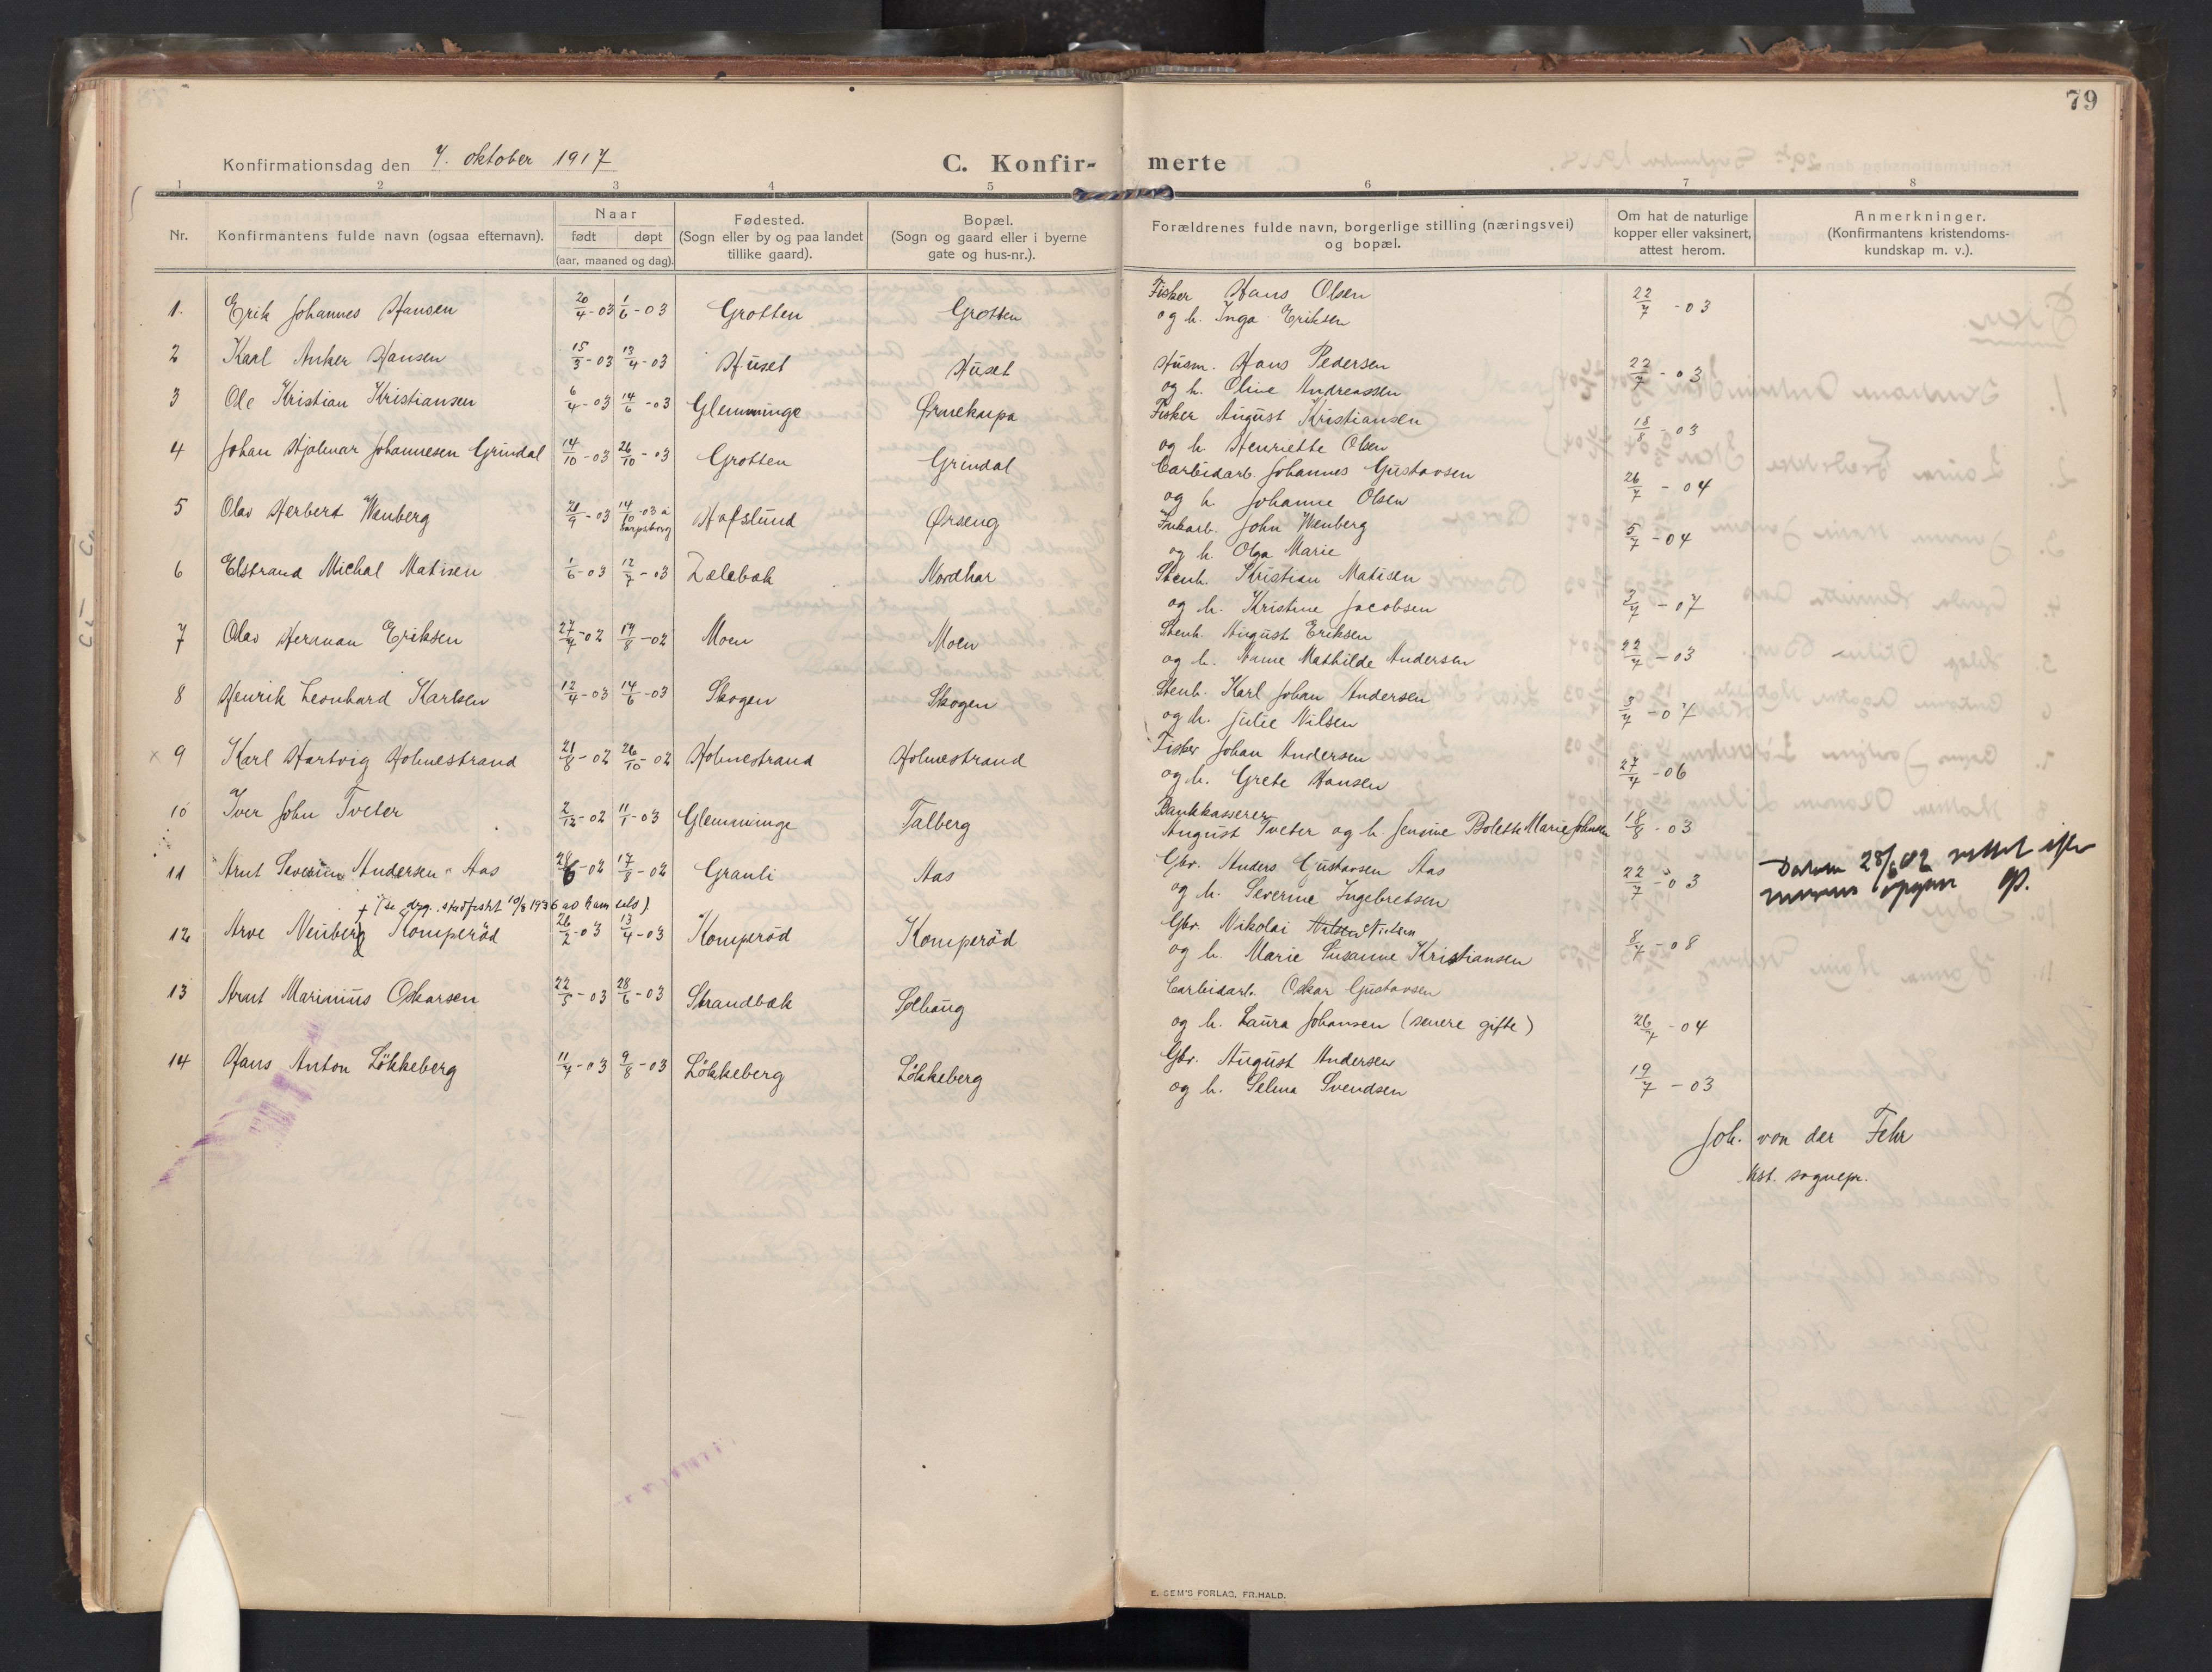 79
Konfirmationsdag den 7. oktober 1917
C. Konfir-
merte
1 2 3 4 5 6 7 8
Nr. Konfirmantens fulde navn (ogsaa efternavn). Naar født døpt (aar, maaned og dag). Fødested. (Sogn eller by og paa landet tillike gaard). Bopæl. (Sogn og gaard eller i byerne gate og hus-nr.). Forældrenes fulde navn, borgerlige stilling (næringsvei) og bopæl. Om hat de naturlige kopper eller vaksinert, attest herom. Anmerkninger. (Konfirmantens kristendoms- kundskap m. v.).
1. Erik Johannes Hansen 20/4-03 1/6-03 Grotten Grotten Fisker Hans Olsen 22/7-03
og h. Inga Eriksen
2 Karl Anker Hansen 15/3-03 13/4-03 Huset Huset Husm. Hans Pedersen 22/7-03
og h. Oline Andreassen
3 Ole Kristian Kristiansen 6/4-03 14/6-03 Glemminge Ørnekaspa Fisker August Kristiansen 18/8-03
og h. Henriette Olsen
4 Johan Hjalmar Johannesen Grindal 14/10-03 26/10-03 Grotten Grindal Carbidarb. Johannes Gustavsen 26/7-04
og h. Johanne Olsen
5 Olav Herbert Wenberg 21/9-03 14/10-03 i Sarpsborg Hafslund Ørseng John Wenberg 5/7-04
og h. Olga Marie
6 Elstrand Michal Matisen 1/6-03 12/7-03 Lælebæk Nordhar Stenh. Kristian Matisen 3/7-07
og h. Kristine Jacobsen
7 Olav Herman Eriksen 27/4-02 17/8-02 Moen Moen Stenh. August Eriksen 22/7-03
og h. Anne Mathilde Andersen
8 Henrik Leonhard Karlsen 12/4-03 14/6-03 Skogen Skogen Stenh. Karl Johan Andersen 3/7-07
og h. Julie Nilsen
× 9 Karl Hartvig Holmestrand 21/8-02 26/10-02 Holmestrand Holmestrand Fisker Johan Andersen 27/7-06
og h. Grete Hansen
10 Iver John Tveter 2/12-02 11/1-03 Glemminge Talberg Bankkasserer
August Tveter og h. Jensine Bolette Marie Johnsen 18/8-03
11 Arnt Severin Andersen Aas 28/6-02 17/8-02 Granli Aas Gbr. Anders Gustavsen Aas 22/7-03 Datum 28/6 02 rettet efter
og h. Severine Ingebretsen
† (se dgg. stadfestet 10/3 1936 av ham selv)
12 Arve Neuberg Komperød 26/2-03 13/4-03 Komperød Komperød Gbr. Nikolai Nilsen Nielsen 8/7-08
og h. Marie Susanne Kristiansen
13 Arnt Marinius Oskarsen 22/5-03 28/6-03 Strandbæk Solhaug Carbidarb. Oskar Gustavsen
og h. Laura Johansen (senere gifte) 26/7-04
14 Hans Anton Løkkeberg 11/7-03 9/8-03 Løkkeberg Løkkeberg Gbr. August Andersen 19/7-03
og h. Selma Svendsen
Joh. von der Fehr
kst. sognepr.
E. SEM'S FORLAG, FR.HALD.